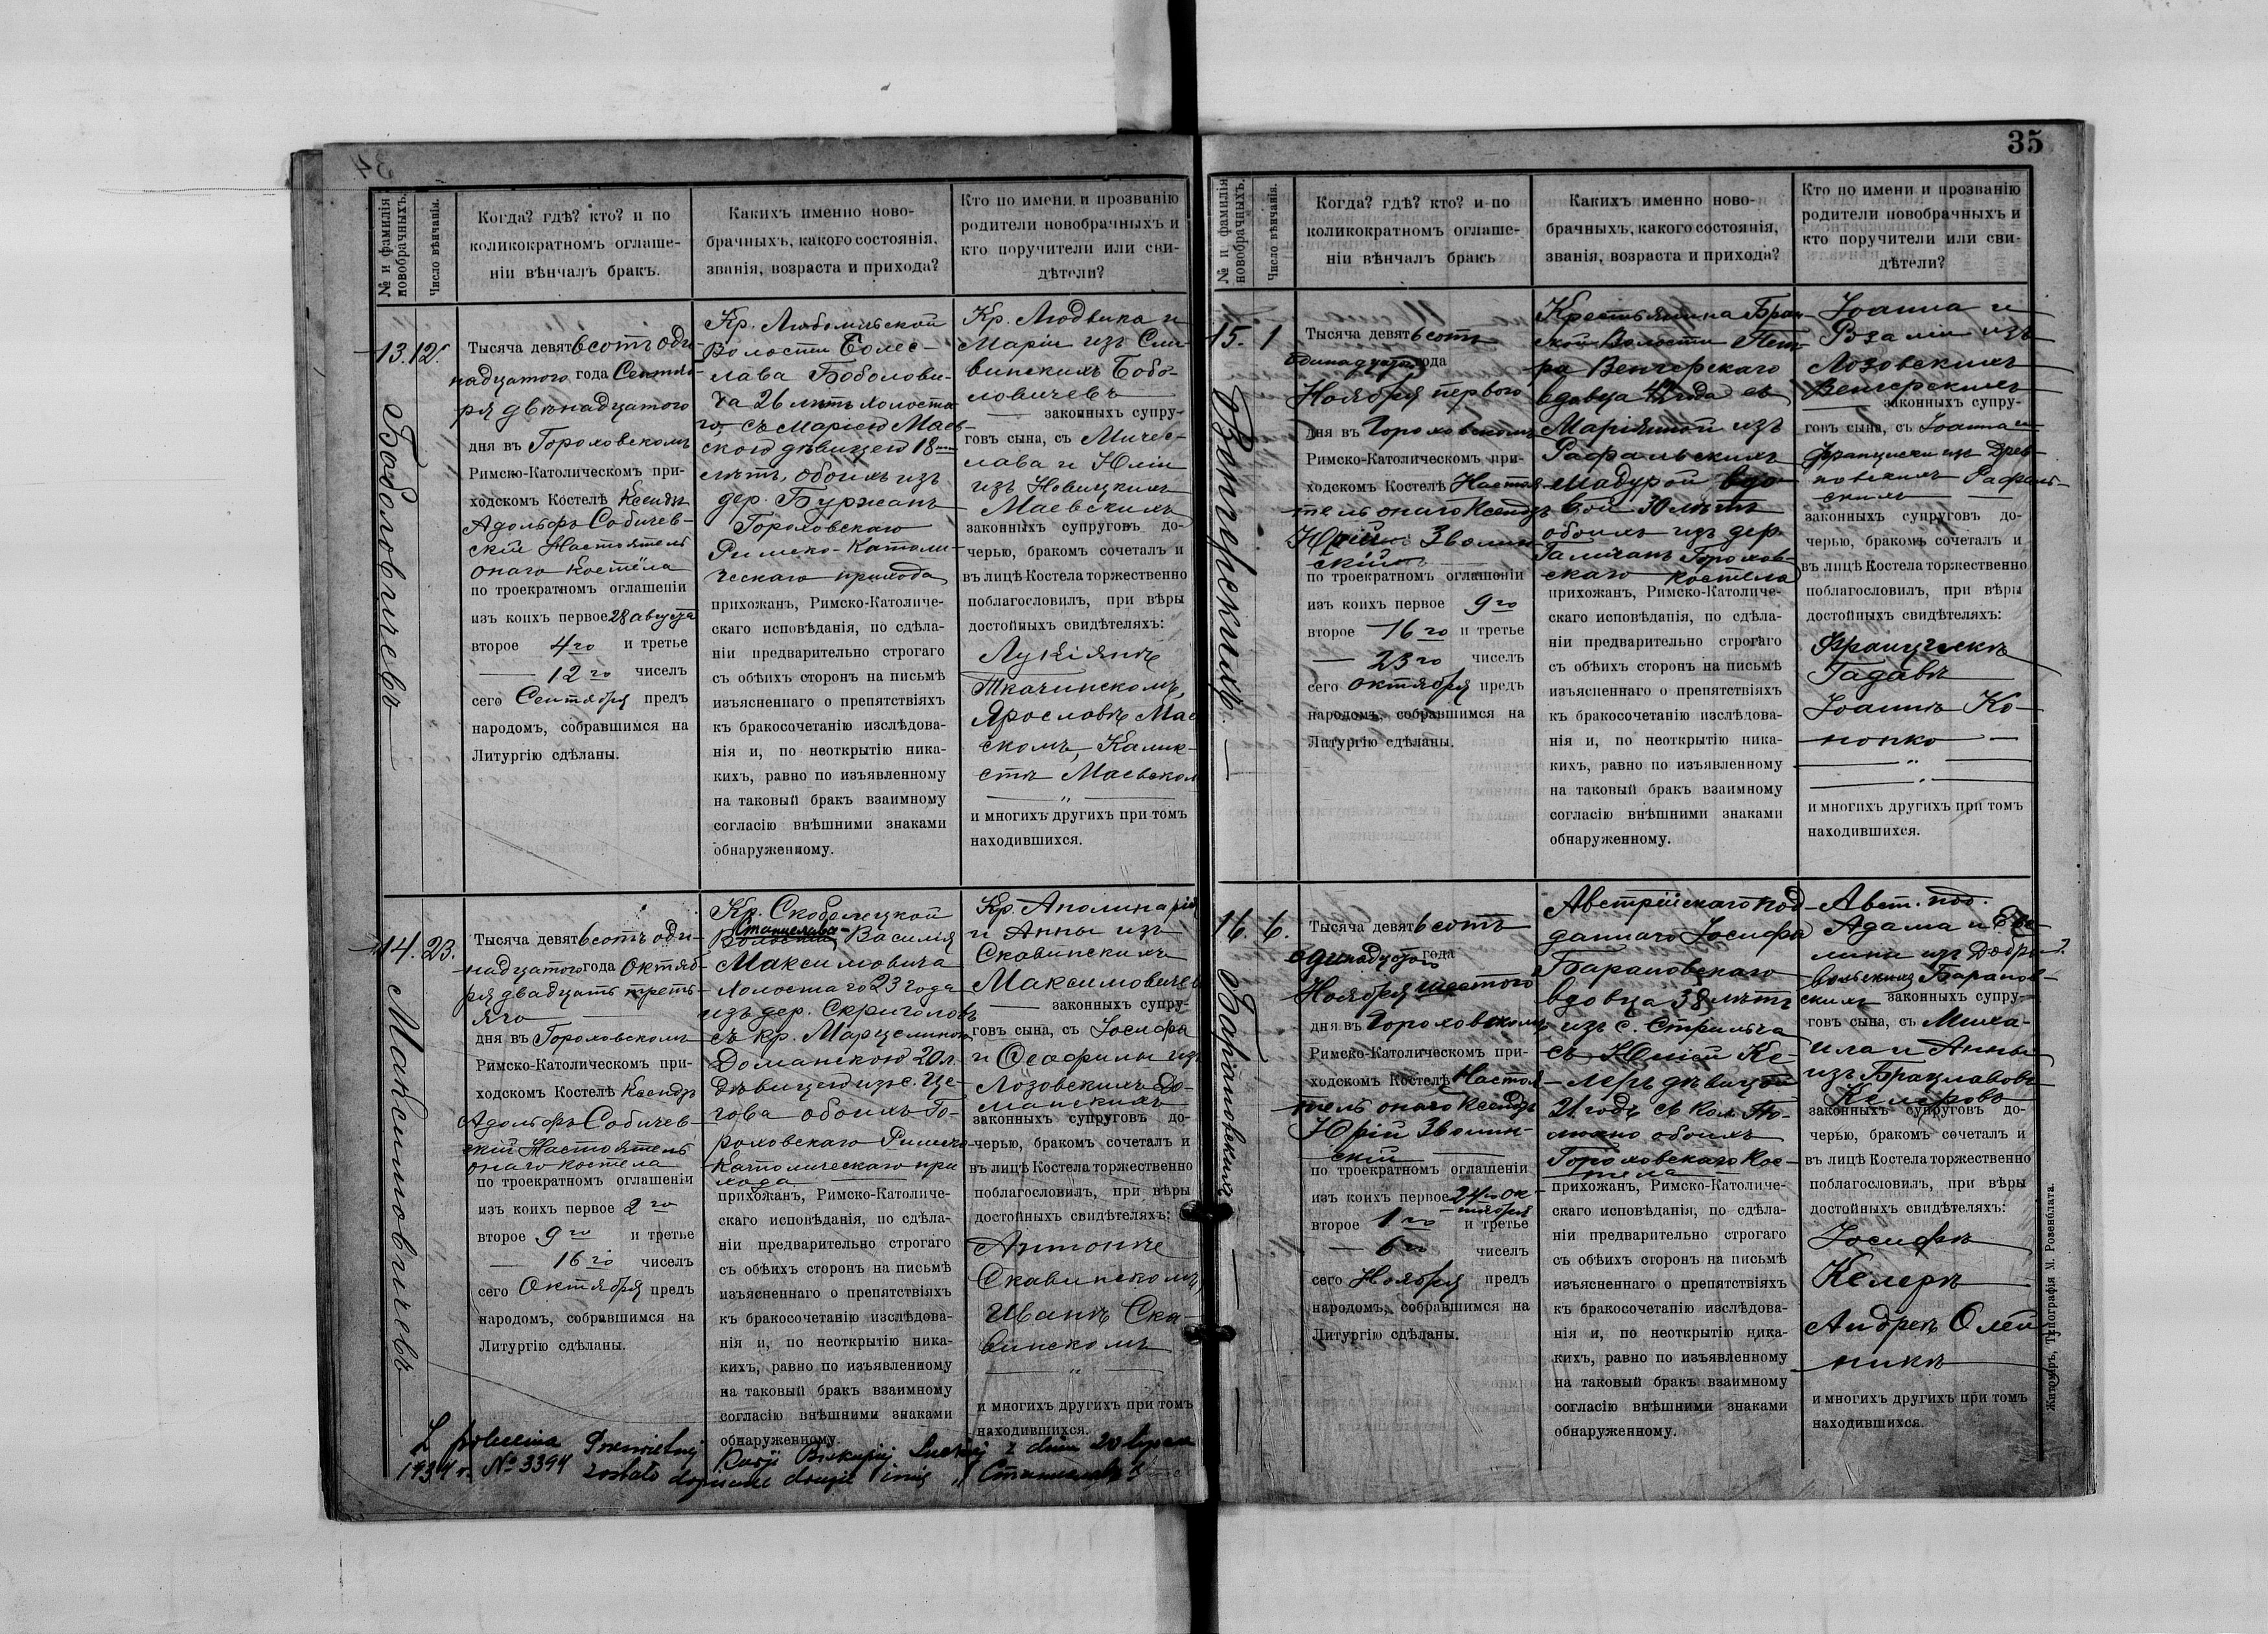 35
№ и фамилія новобрачныхъ.
Число вѣнчанія.
Когда? гдѣ? кто? и по
коликократномъ оглаше-
ніи вѣнчалъ бракъ.
Каквхъ именно ново-
брачныхъ, какого состоянія,
званія, возраста и прихода?
Кто по имени и прозванію
родители новобрачныхъ и
кто поручители или сви-
дѣтели?
13.
12.
Боболовичевъ
Тысяча девятьсотъ оди-
надцатого года Сентяб-
ря двѣнадцатого
дня въ Гороховскомъ
Римско-Католическомъ при-
ходскомъ Костелѣ Ксендзъ
Адольфъ Собичев-
скій Настоятель
онаго костела
по троекратномъ оглашеніи
изъ коихъ первое 28 августа
второе 4го и третье
12го чиселъ
сего Сентября предъ
народомъ, собравшимся на
Литургію сдѣланы.
Кр. Любомльской
Волости Болес-
лава Боболови-
ча 26 лѣтъ холоста-
го, съ Маріею Маев-
скою дѣвицею 18
лѣтъ, обоихъ изъ
дер. Буржанъ
Гороховскаго
Римско-Католи-
ческаго прихода
прихожанъ, Римско-Католиче-
скаго исповѣданія, по сдѣла-
ніи предварительно строгаго
съ обѣихъ сторонъ на письмѣ
изъясненнаго о препятствіяхъ
къ бракосочетанію изслѣдова-
нія и, по неоткрытію ника-
кихъ, равно по изъявленному
на таковый бракъ взаимному
согласію внѣшними знаками
обнаруженному.
Кр. Людвика и
Маріи изъ Сли-
винскихъ Бобо-
ловичевъ
законныхъ супру-
говъ сына, съ Мечес-
лава и Юліи
изъ Новицкихъ
Маевскихъ
законныхъ супруговъ до-
черью, бракомъ сочеталъ и
въ лицѣ Костела торжественно
поблагословилъ, при вѣры
достойныхъ свидѣтеляхъ:
Лукіянѣ
Ткачинскомъ,
Ярославѣ Мае
скомъ, Калик-
стѣ Маевском
и многихъ другихъ при томъ
находившихся.
14.
23.
Максимовичевъ
Тысяча девятьсотъ оди-
надцатого года Октяб-
ря двадцать треть-
яго
дня въ Гороховскомъ
Римско-Католическомъ при-
ходскомъ Костелѣ Ксендзъ
Адольфъ Собичев-
скій Настоятель
онаго костела
по троекратномъ оглашеніи
изъ коихъ первое 2го
второе 9го и третье
16го чиселъ
сего Октября предъ
народомъ, собравшимся на
Литургію сдѣланы.
Кр. Скобелецкой
Станислава-
Волости Василія
Максимовича
холостаго 23 года
изъ дер. Скриголовъ
съ кр. Марцелиною
Доманскою 20 л.
дѣвицею изъ с. Це-
гова обоихъ Го-
роховскаго Римско-
Католическаго при
хода
прихожанъ, Римско-Католиче-
скаго исповѣданія, по сдѣла-
ніи предварительно строгаго
съ обѣихъ сторонъ на письмѣ
изъясненнаго о препятствіяхъ
къ бракосочетанію изслѣдова-
нія и, по неоткрытію ника-
кихъ, равно по изъявленному
на таковый бракъ взаимному
согласію внѣшними знаками
обнаруженному.
Кр. Аполинарія
и Анны изъ
Скавинскихъ
Максимовичевъ
законныхъ супру-
говъ сына, съ Іосифа
и Ѳеофилы изъ
Лозовскихъ До-
манскихъ
законныхъ супруговъ до-
черью, бракомъ сочеталъ и
въ лицѣ Костела торжественно
поблагословилъ, при вѣры
достойныхъ свидѣтеляхъ:
Антонѣ
Скавинскомъ
Иванѣ Ска-
винскомъ
и многихъ другихъ при томъ
находившихся.
Z polecenia Prześwietnej Kurji Biskupiej Łuckiej z dnia 20 lipca
1934 r. № 3394 zostało dopisane drugie imię „Станиславъ"
№ и фамилія новобрачныхъ.
Число вѣнчанія.
Когда? гдѣ? кто? и по
коликократномъ оглаше-
ніи вѣнчалъ бракъ
Какихъ именно ново-
брачныхъ, какого состоянія,
званія, возраста и прихода?
Кто по имени и прозванію
родители новобрачныхъ и
кто поручители или сви-
дѣтели?
15.
1
Венгерскихъ
Тысяча девятьсотъ
одинадцатаго года
Ноября первого
дня въ Гороховскомъ
Римско-Католическомъ при-
ходскомъ Костелѣ Настоя-
тель онаго Ксендзъ
Юрій Зволин-
скій
по троекратномъ оглашеніи
изъ коихъ первое 9го
второе 16го и третье
23го чиселъ
сего октября предъ
народомъ, собравшимся на
Литургію сдѣланы.
Крестьянина Бран-
ской Волости Пет-
ра Венгерскаго
вдовца 42 года съ
Маріянной изъ
Рафальскихъ
Мадурой вдо-
вой 30 лѣтъ
обоихъ изъ дер.
Галичанъ Горохов-
скаго костела
прихожанъ, Римско-Католиче-
скаго исповѣданія, по сдѣла-
ніи предварительно строгаго
съ обѣихъ сторонъ на письмѣ
изъясненнаго о препятствіяхъ
къ бракосочетанію изслѣдова-
нія и, по неоткрытію ника-
кихъ, равно по изъявленному
на таковый бракъ взаимному
согласію внѣшними знаками
обнаруженному.
Іоанна и
Розаліи изъ
Лозовскихъ
Венгерскихъ
законныхъ супру-
говъ сына, съ Іоанна и
Франциски изъ Древ-
новскихъ Рафаль-
скихъ
законныхъ супруговъ до-
черью, бракомъ сочеталъ и
въ лицѣ Костела торжественно
поблагословилъ, при вѣры
достойныхъ свидѣтеляхъ:
Францискѣ
Гадавѣ
Іоаннѣ Ко-
нопко
и многихъ другихъ при томъ
находившихся.
16.
6.
Барановскихъ
Тысяча девятьсотъ
одинадцатого года
Ноября шестого
дня въ Гороховскомъ
Римско-Католическомъ при-
ходскомъ Костелѣ Настоя-
тель онаго Ксендзъ
Юрій Зволин-
скій
по троекратномъ оглашеніи
изъ коихъ первое 24го ок-
тября
второе 1го и третье
6го чиселъ
сего Ноября предъ
народомъ, собравшимся на
Литургію сдѣланы.
Австрійскаго под-
даннаго Іосифа
Барановскаго
вдовца 38 лѣтъ
изъ с. Стрильча
съ Юліей Ке-
леръ дѣвицей
21 годъ съ кол.
обоихъ
Гороховскаго Кос-
тела
прихожанъ, Римско-Католиче-
скаго исповѣданія, по сдѣла-
ніи предварительно строгаго
съ обѣихъ сторонъ на письмѣ
изъясненнаго о препятствіяхъ
къ бракосочетанію изслѣдова-
нія и, по неоткрытію ника-
кихъ, равно по изъявленному
на таковый бракъ взаимному
согласію внѣшними знаками
обнаруженному.
Авст. под.
Адама и Еве-
лини изъ Добро-
вольскихъ Баранов-
скихъ законныхъ супру-
говъ сына, съ Миха-
ила и Анны
изъ Брацлавовъ
Келеровъ
законныхъ супруговъ до-
черью, бракомъ сочеталъ и
въ лицѣ Костела торжественно
поблагословилъ, при вѣры
достойныхъ свидѣтеляхъ:
Іосифѣ
Келерѣ
Андреѣ Олей
никѣ
и многихъ другихъ при томъ
находившихся.
Житоміръ, Типографія М. Розенблата.